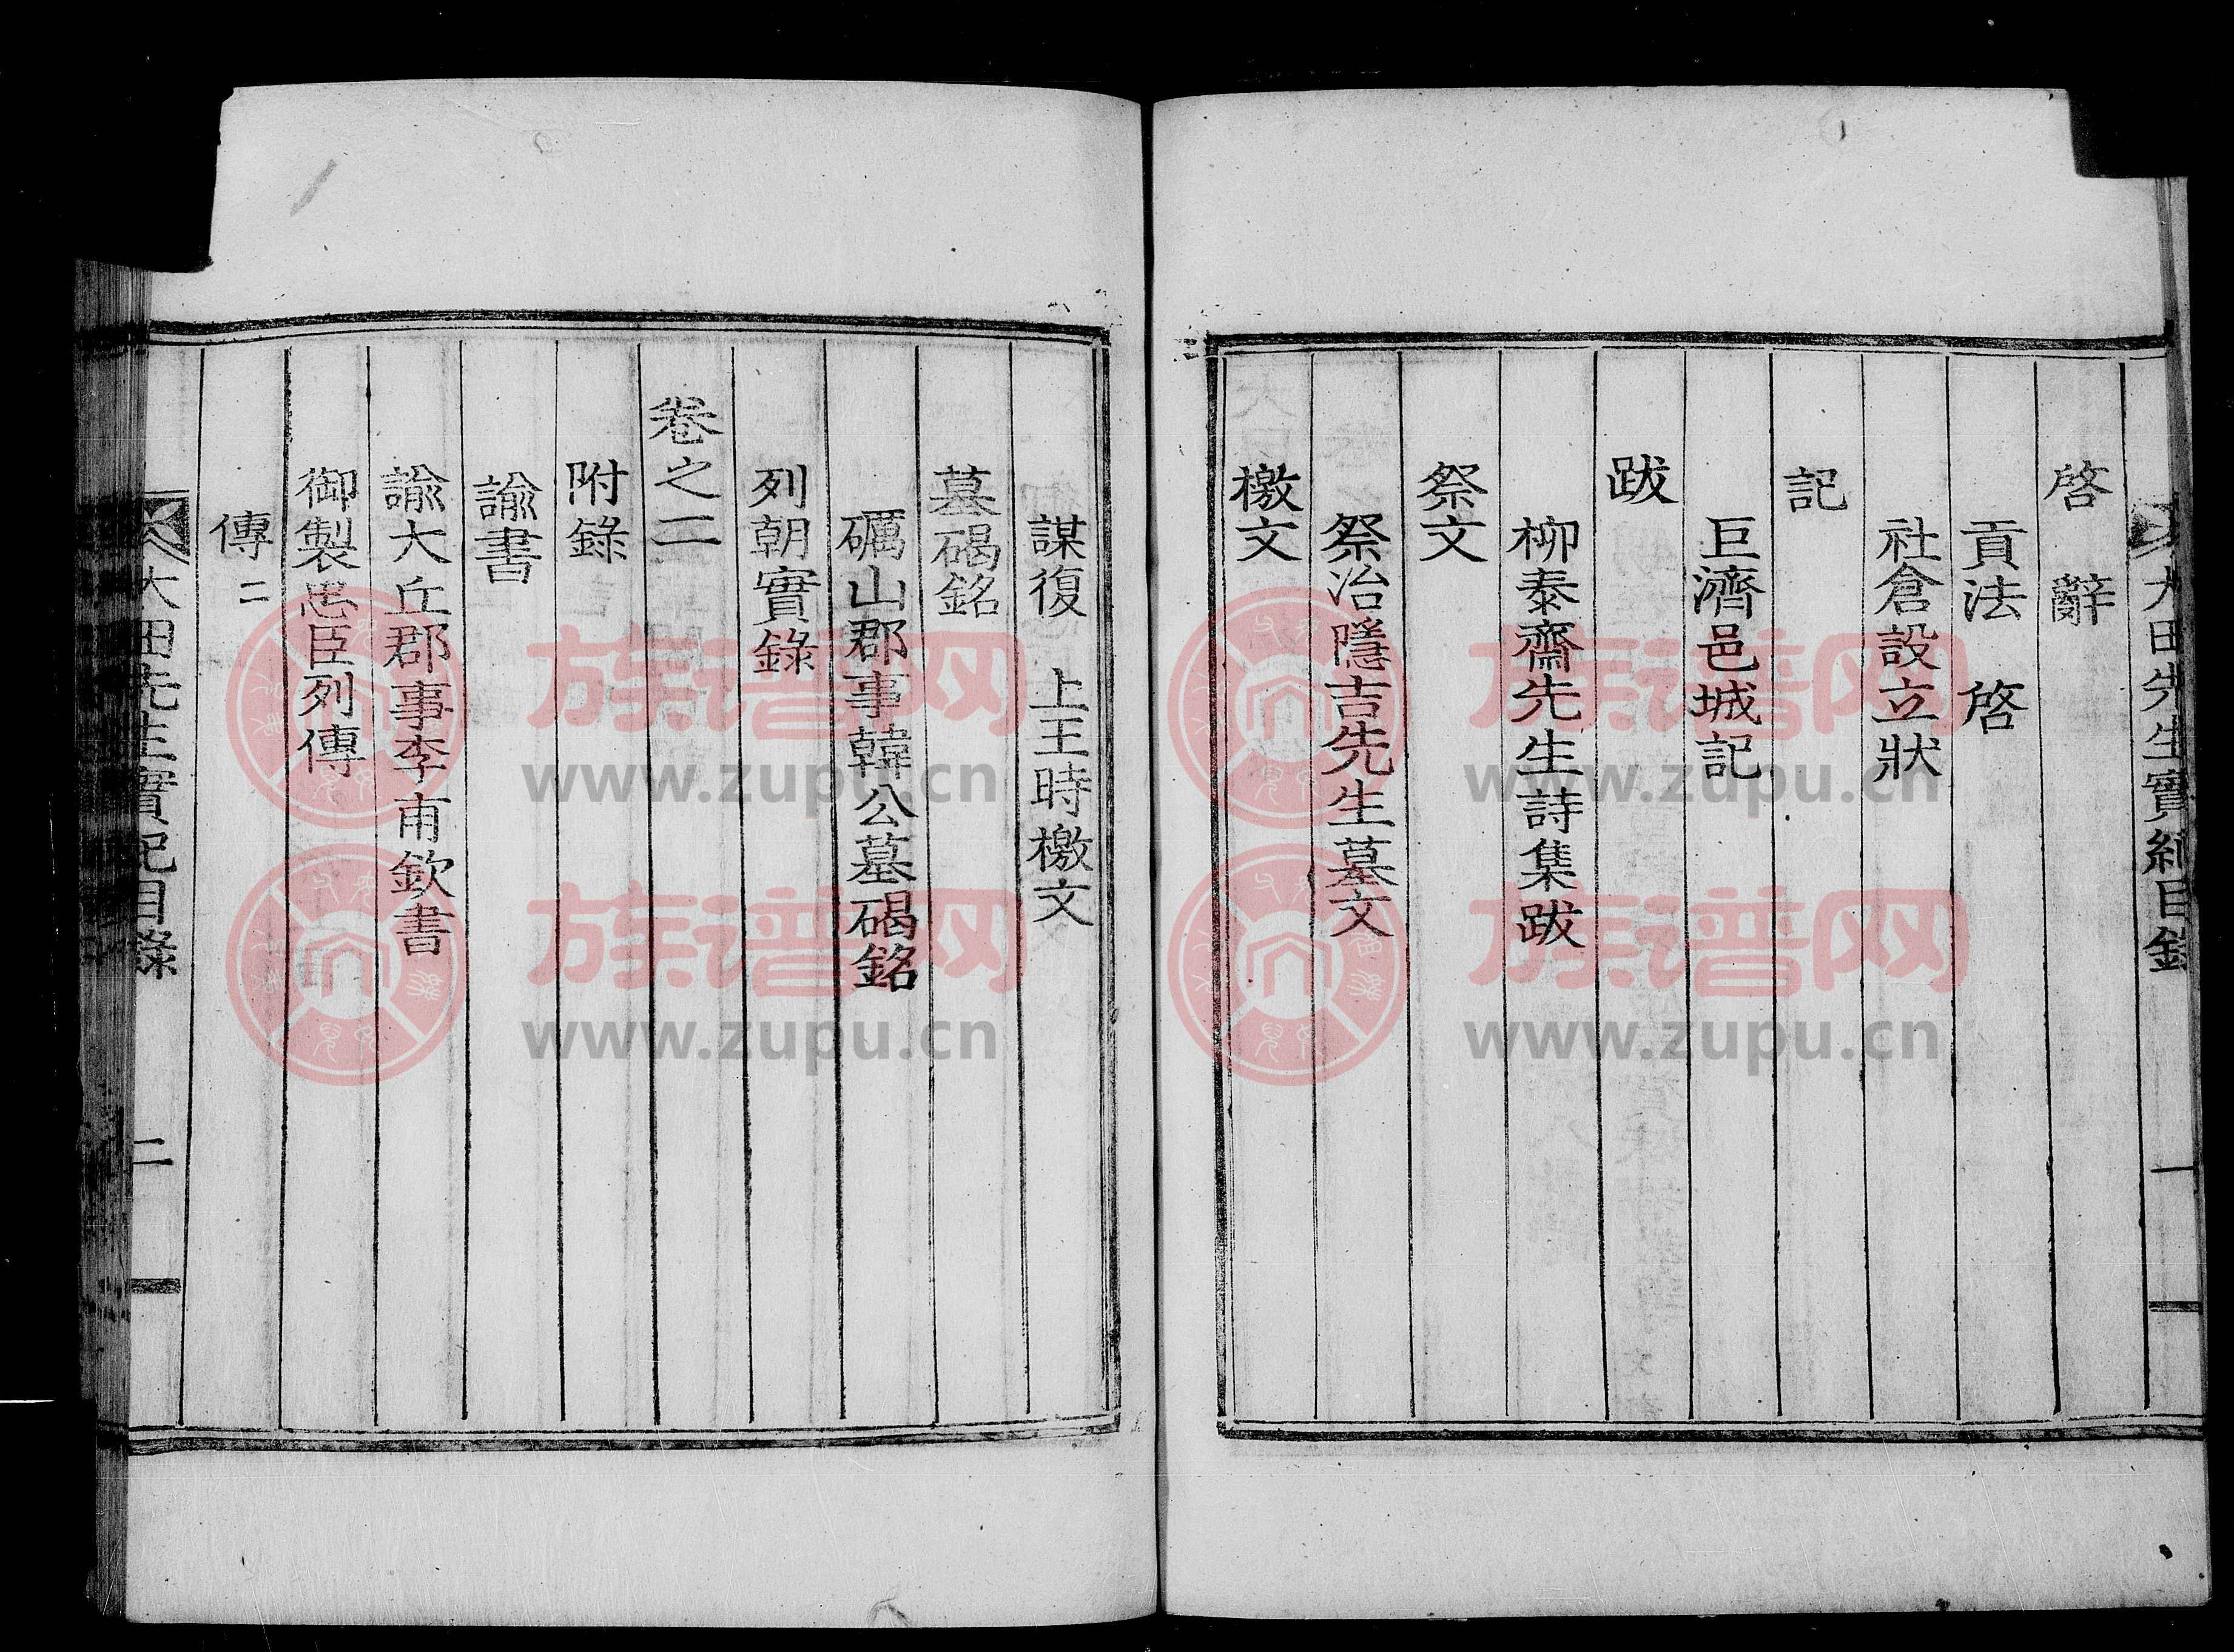 大田先生實紀目錄 一
啓辭
貢法啓
社倉設立狀
記
巨濟邑城記
跋
柳泰齋先生詩集跋
祭文
祭冶隱吉先生墓文
檄文
謀復 上王時檄文
墓碣銘
礪山郡事韓公墓碣銘
列朝實錄
卷之二
附錄
諭書
諭大丘郡事李甫欽書
御製忠臣列傳
傳二
大田先生實紀目錄 二
族谱网
www.zupu.cn
族谱网
www.zupu.cn
族谱网
www.zupu.cn
族谱网
www.zupu.cn